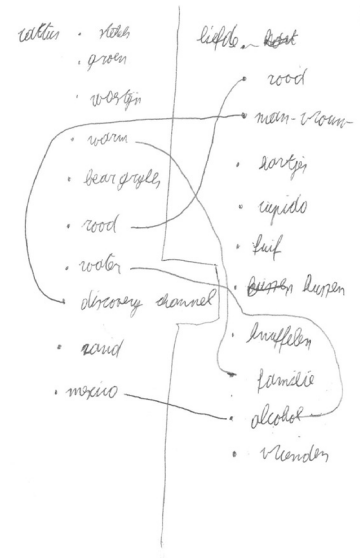 cactus . stekels
. groen
. woestijn
. warm
. bear grylls
. rood
. water
. discovery channel
. zand
. mexico
liefde
. rood
. man-vrouw
. hartjes
. cupido
. fuif
. kussen
. knuffelen
. familie
. alcohol
. vrienden